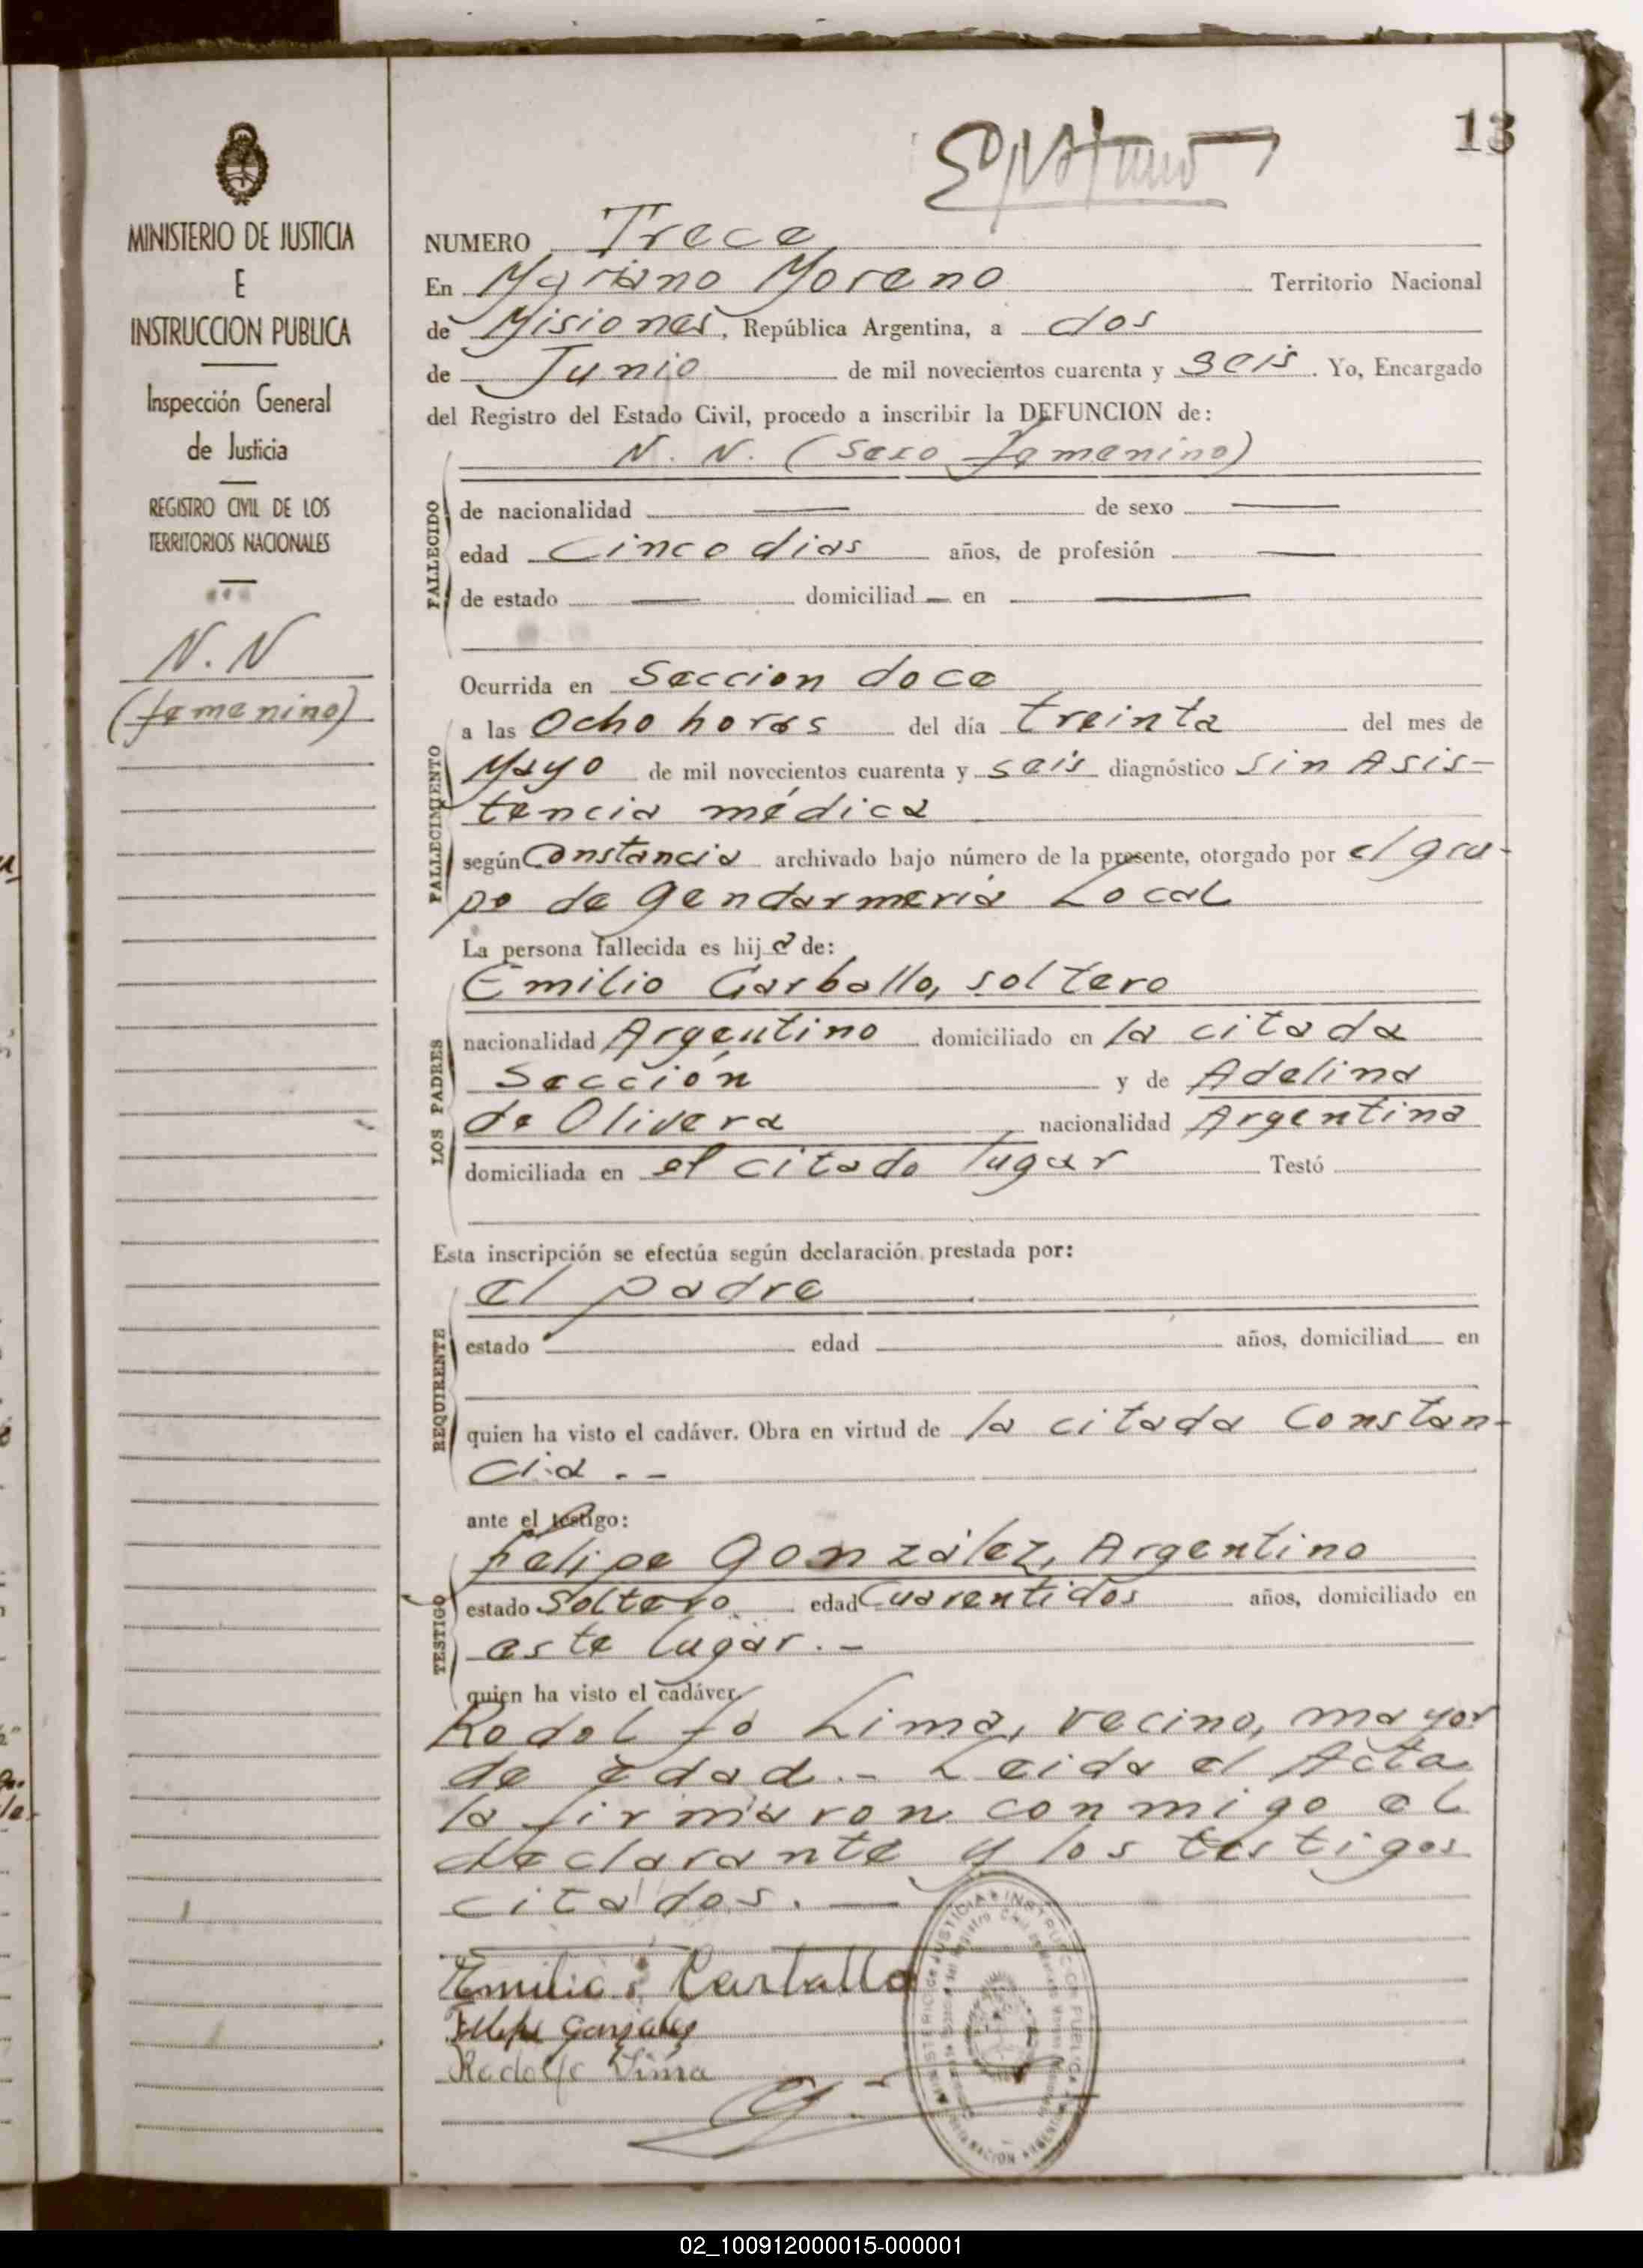 13
MINISTERIO DE JUSTICIA
E
INSTRUCCION PUBLICA
Inspección General
de Justicia
REGISTRO CIVIL DE LOS
TERRITORIOS NACIONALES
N. N
(femenino)
NUMERO Trece
En Mariano Moreno Territorio Nacional
de Misiones, República Argentina, a dos
de Junio de mil novecientos cuarenta y seis. Yo, Encargado
del Registro del Estado Civil, procedo a inscribir la DEFUNCION de:
N. N. (sexo femenino)
FALLECIDO
de nacionalidad — de sexo —
edad Cinco dias años, de profesión —
de estado — domiciliad — en —
FALLECIMIENTO
Ocurrida en Seccion doce
a las Ocho horas del día treinta del mes de
Mayo de mil novecientos cuarenta y seis diagnóstico Sin Asis-
tencia médica
según Constancia archivado bajo número de la presente, otorgado por el gru-
po de Gendarmeria Local
La persona fallecida es hija de:
LOS PADRES
Emilio Carballo, soltero
nacionalidad Argentino domiciliado en la citada
Sección y de Adelina
de Olivera nacionalidad Argentina
domiciliada en el citado lugar Testó
Esta inscripción se efectúa según declaración prestada por:
REQUIRENTE
el padre
estado edad años, domiciliad en
quien ha visto el cadáver. Obra en virtud de la citada Constan-
cia. -
ante el testigo:
TESTIGO
Felipe González, Argentino
estado Soltero edad Cuarentidos años, domiciliado en
este lugar. -
quien ha visto el cadáver
Rodolfo Lima, vecino, mayor
de edad. - Leida el Acta
la firmaron conmigo el
declarante y los testigos
citados. —
Emilio Carballo
Felipe Gonzalez
Rodolfo Lima
02_100912000015-000001